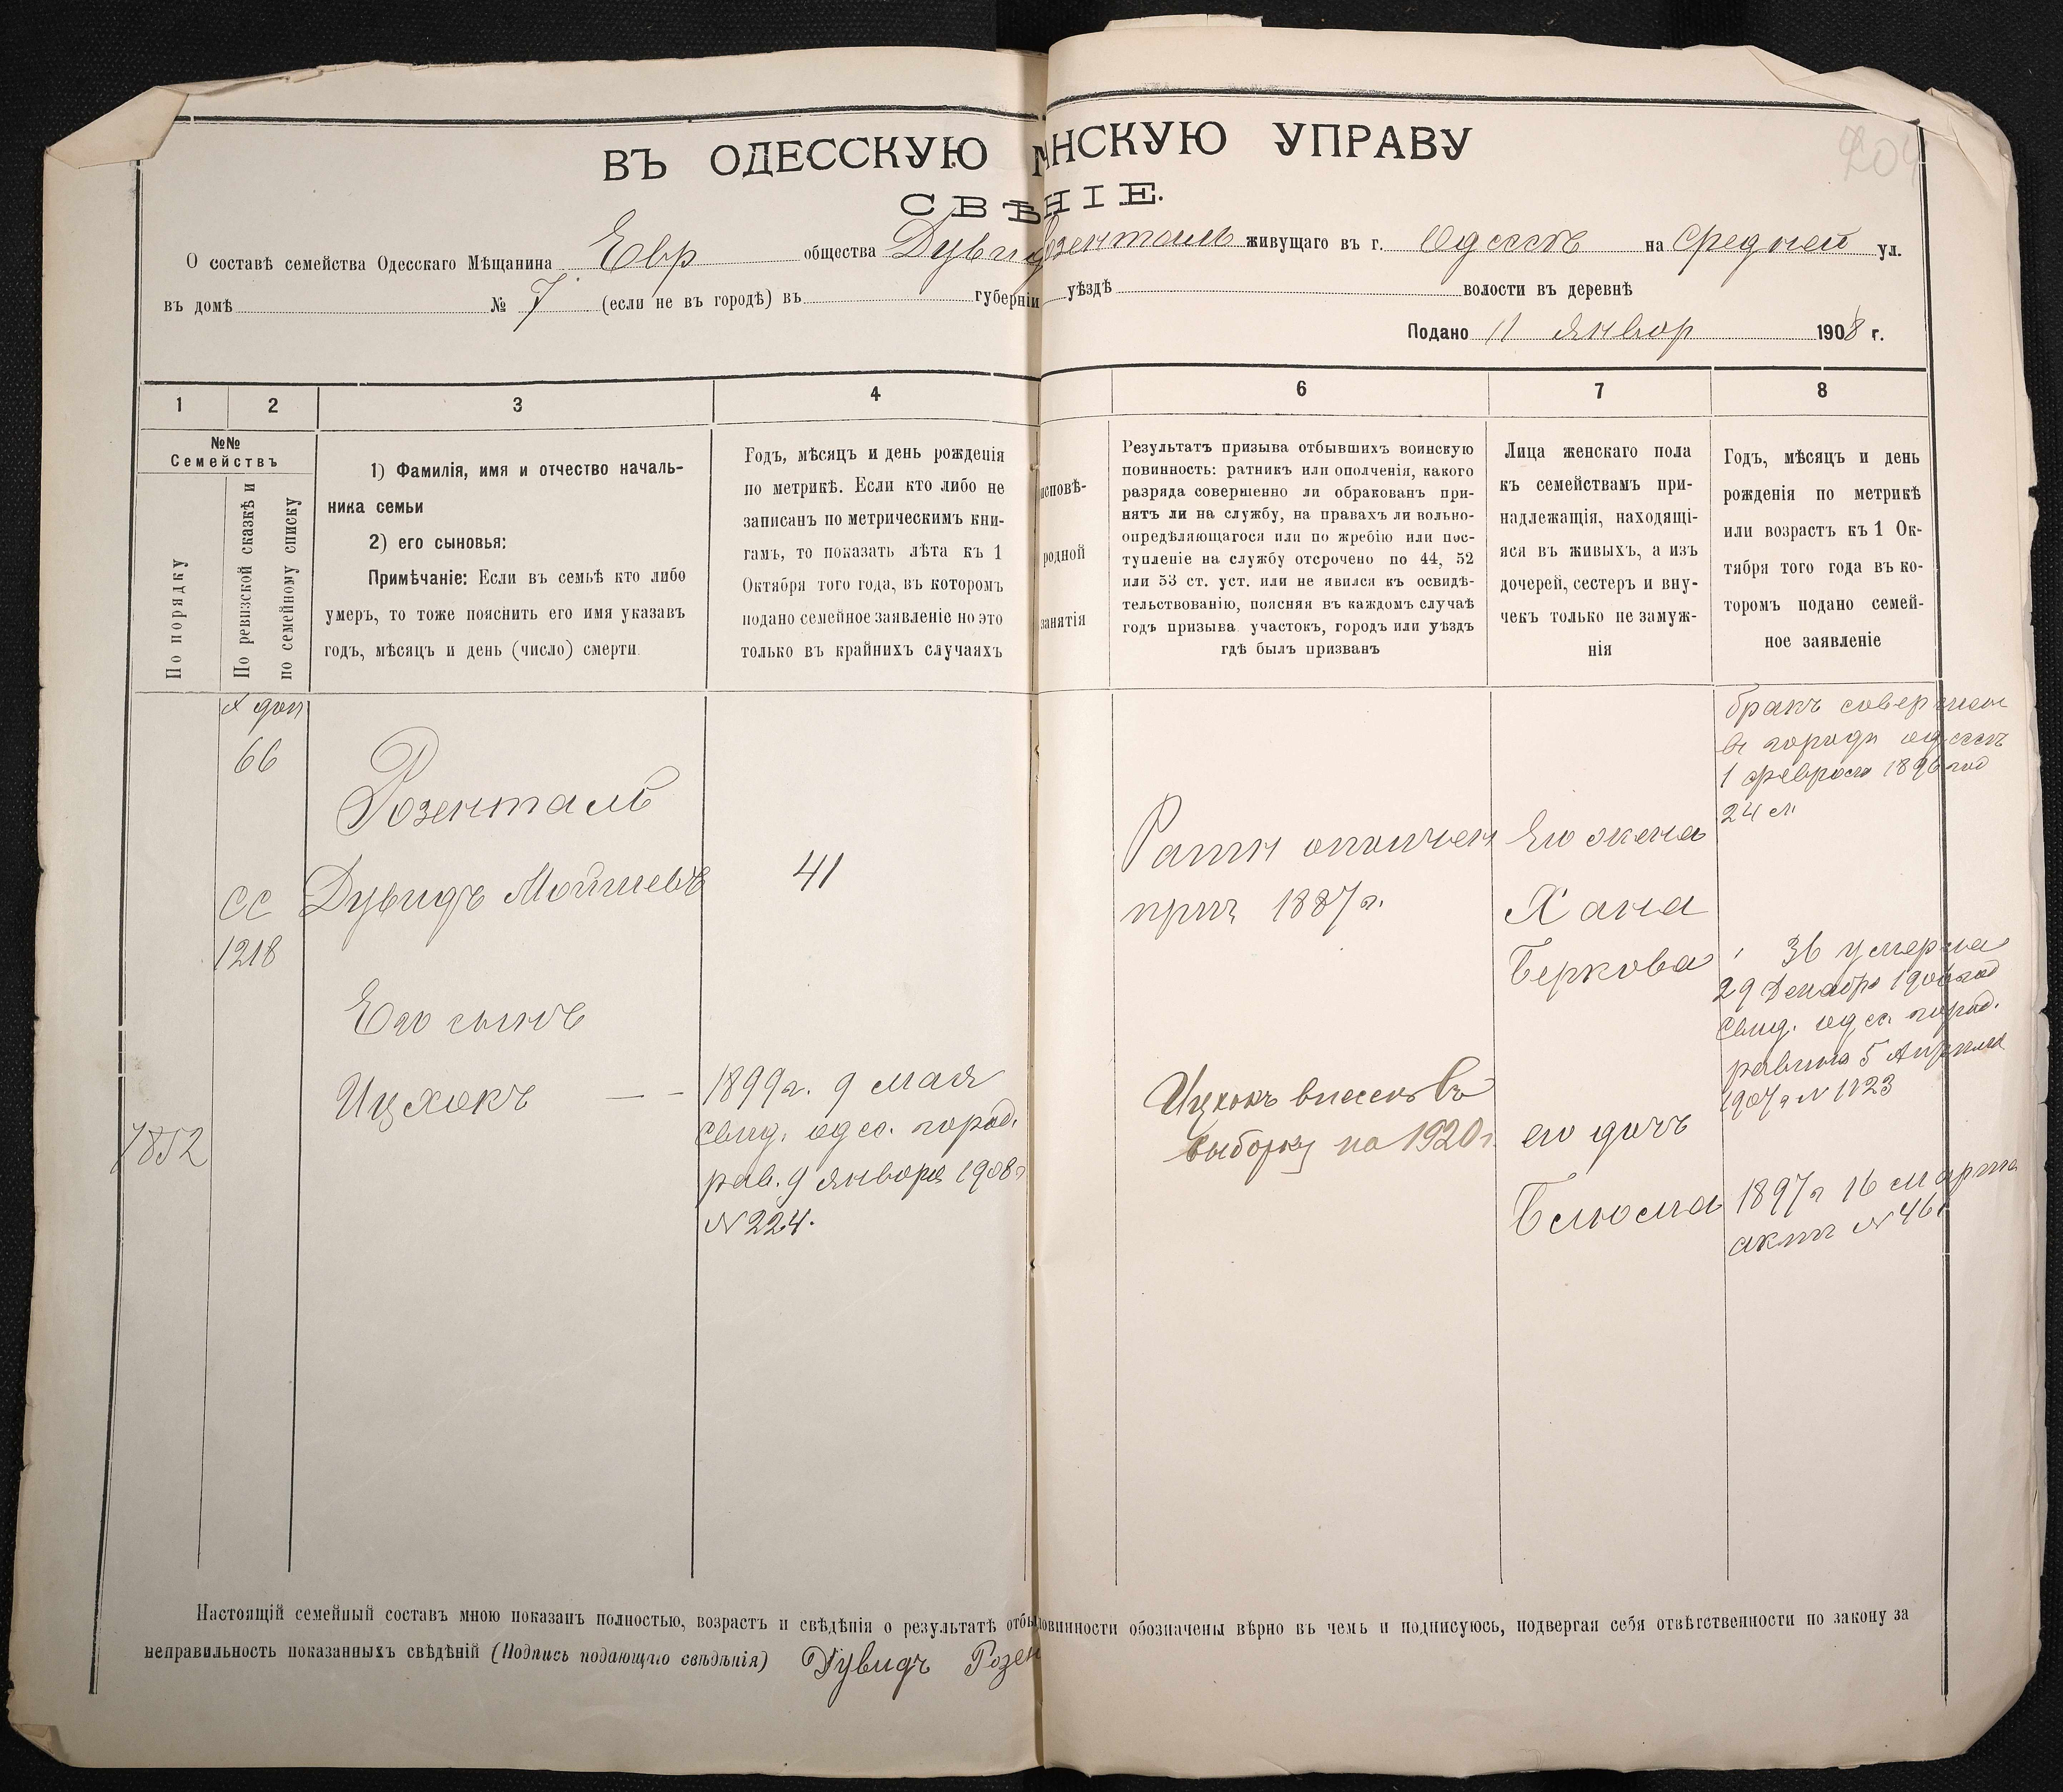 204
ВЪ ОДЕССКУЮ МѢЩАНСКУЮ УПРАВУ
СВѢНІЕ.
О составѣ семейства Одесскаго Мѣщанина Евр общества Дувид Розенталь живущаго въ г. Одессѣ на Средней ул.
въ домѣ № 7 (если не въ городѣ) въ губерніи уѣздѣ волости въ деревнѣ
Подано 11 Январ 1908 г.
1 2 3 4 6 7 8
№№
Семействъ
По порядку
По ревизской сказкѣ и
по семейному списку
1) Фамилія, имя и отчество началь-
ника семьи
2) его сыновья:
Примѣчаніе: Если въ семьѣ кто либо
умеръ, то тоже пояснить его имя указавъ
годъ, мѣсяцъ и день (число) смерти.
Годъ, мѣсяцъ и день рожденія
по метрикѣ. Если кто либо не
записанъ по метрическимъ кни-
гамъ, то показать лѣта къ 1
Октября того года, въ которомъ
подано семейное заявленіе но это
только въ крайнихъ случаяхъ
исповѣ-
родной
занятія
Результатъ призыва отбывшихъ воинскую
повинность: ратникъ или ополченія, какого
разряда совершенно ли обракованъ при-
нятъ ли на службу, на правахъ ли вольно-
опредѣляющагося или по жребію или пос-
тупленіе на службу отсрочено по 44, 52
или 53 ст. уст. или не явился къ освидѣ-
тельствованію, поясняя въ каждомъ случаѣ
годъ призыва участокъ, городъ или уѣздъ
гдѣ былъ призванъ
Лица женскаго пола
къ семействамъ при-
надлежащія, находящі-
яся въ живыхъ, а изъ
дочерей, сестеръ и вну-
чекъ только не замуж-
нія
Годъ, мѣсяцъ и день
рожденія по метрикѣ
или возрастъ къ 1 Ок-
тября того года въ ко-
торомъ подано семей-
ное заявленіе
доп
66
СС
1218
7852
Розенталь
Дувидъ Мошиевъ
Его сынъ
Ицхокъ — —
41
1899г. 9 мая
Свид. одес. город.
рав. 9 января 1908г
№ 224.
Ратн ополчен
приз 1887г.
Ицхокъ внесенъ въ
выборку на 1920г.
Его жена
Хана
Беркова
его дочь
Блюма
бракъ совершон
в городи одессѣ
1 февраля 1896 год
24 л
36 умерла
29 Декабря 1906 год
Свид. одес. город.
равина 5 Апреля
1907 г № 1123
1897 г 16 марта
актъ № 461
Настоящій семейный составъ мною показанъ полностью, возрастъ и свѣдѣнія о результатѣ отбы повинности обозначены вѣрно въ чемъ и подписуюсь, подвергая себя отвѣтственности по закону за
неправильность показанныхъ свѣдѣній (Подпись подающаго свѣдѣнія) Дувидъ Розен